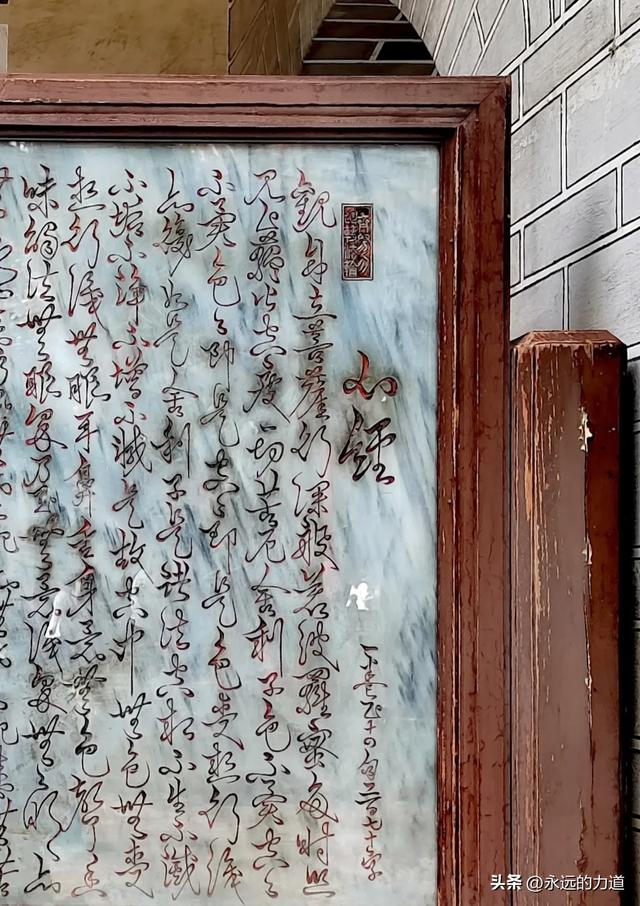 心經
觀自在菩薩行深般若波羅蜜多時照
見五蘊皆空度一切苦厄舍利子色不異空空
不異色色即是空空即是色受想行識
亦復如是舍利子是諸法空相不生不滅
不垢不淨不增不減是故空中無色無受
想行識無眼耳鼻舌身意無色聲香
味觸法無眼界乃至無意識界無無明亦
头条 @永远的力道